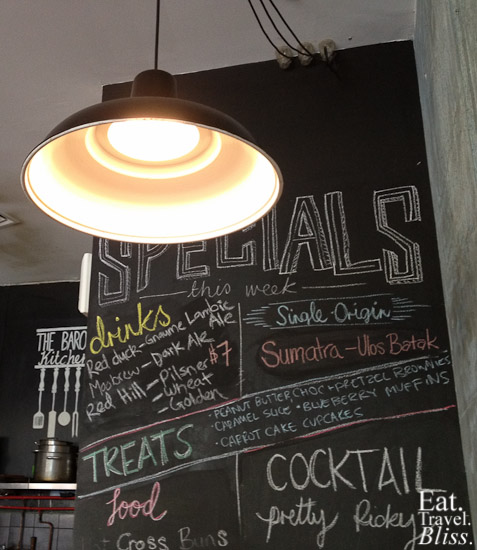 SPECIALS
this week
drinks
Red duck - Gnome Lambic Ale
Moobrew - Dark Ale
Red Hill - Pilsner
- Wheat
- Golden
$7
Single Origin
Sumatra - Ulos Batak
• PEANUT BUTTER CHOC + PRETZEL BROWNIES
• CARAMEL SLICE • BLUEBERRY MUFFINS
• CARROT CAKE CUPCAKES
TREATS
food
Hot Cross Buns
COCKTAIL
pretty Ricky
THE BARC
Kitchen
Eat.
Travel.
Bliss.